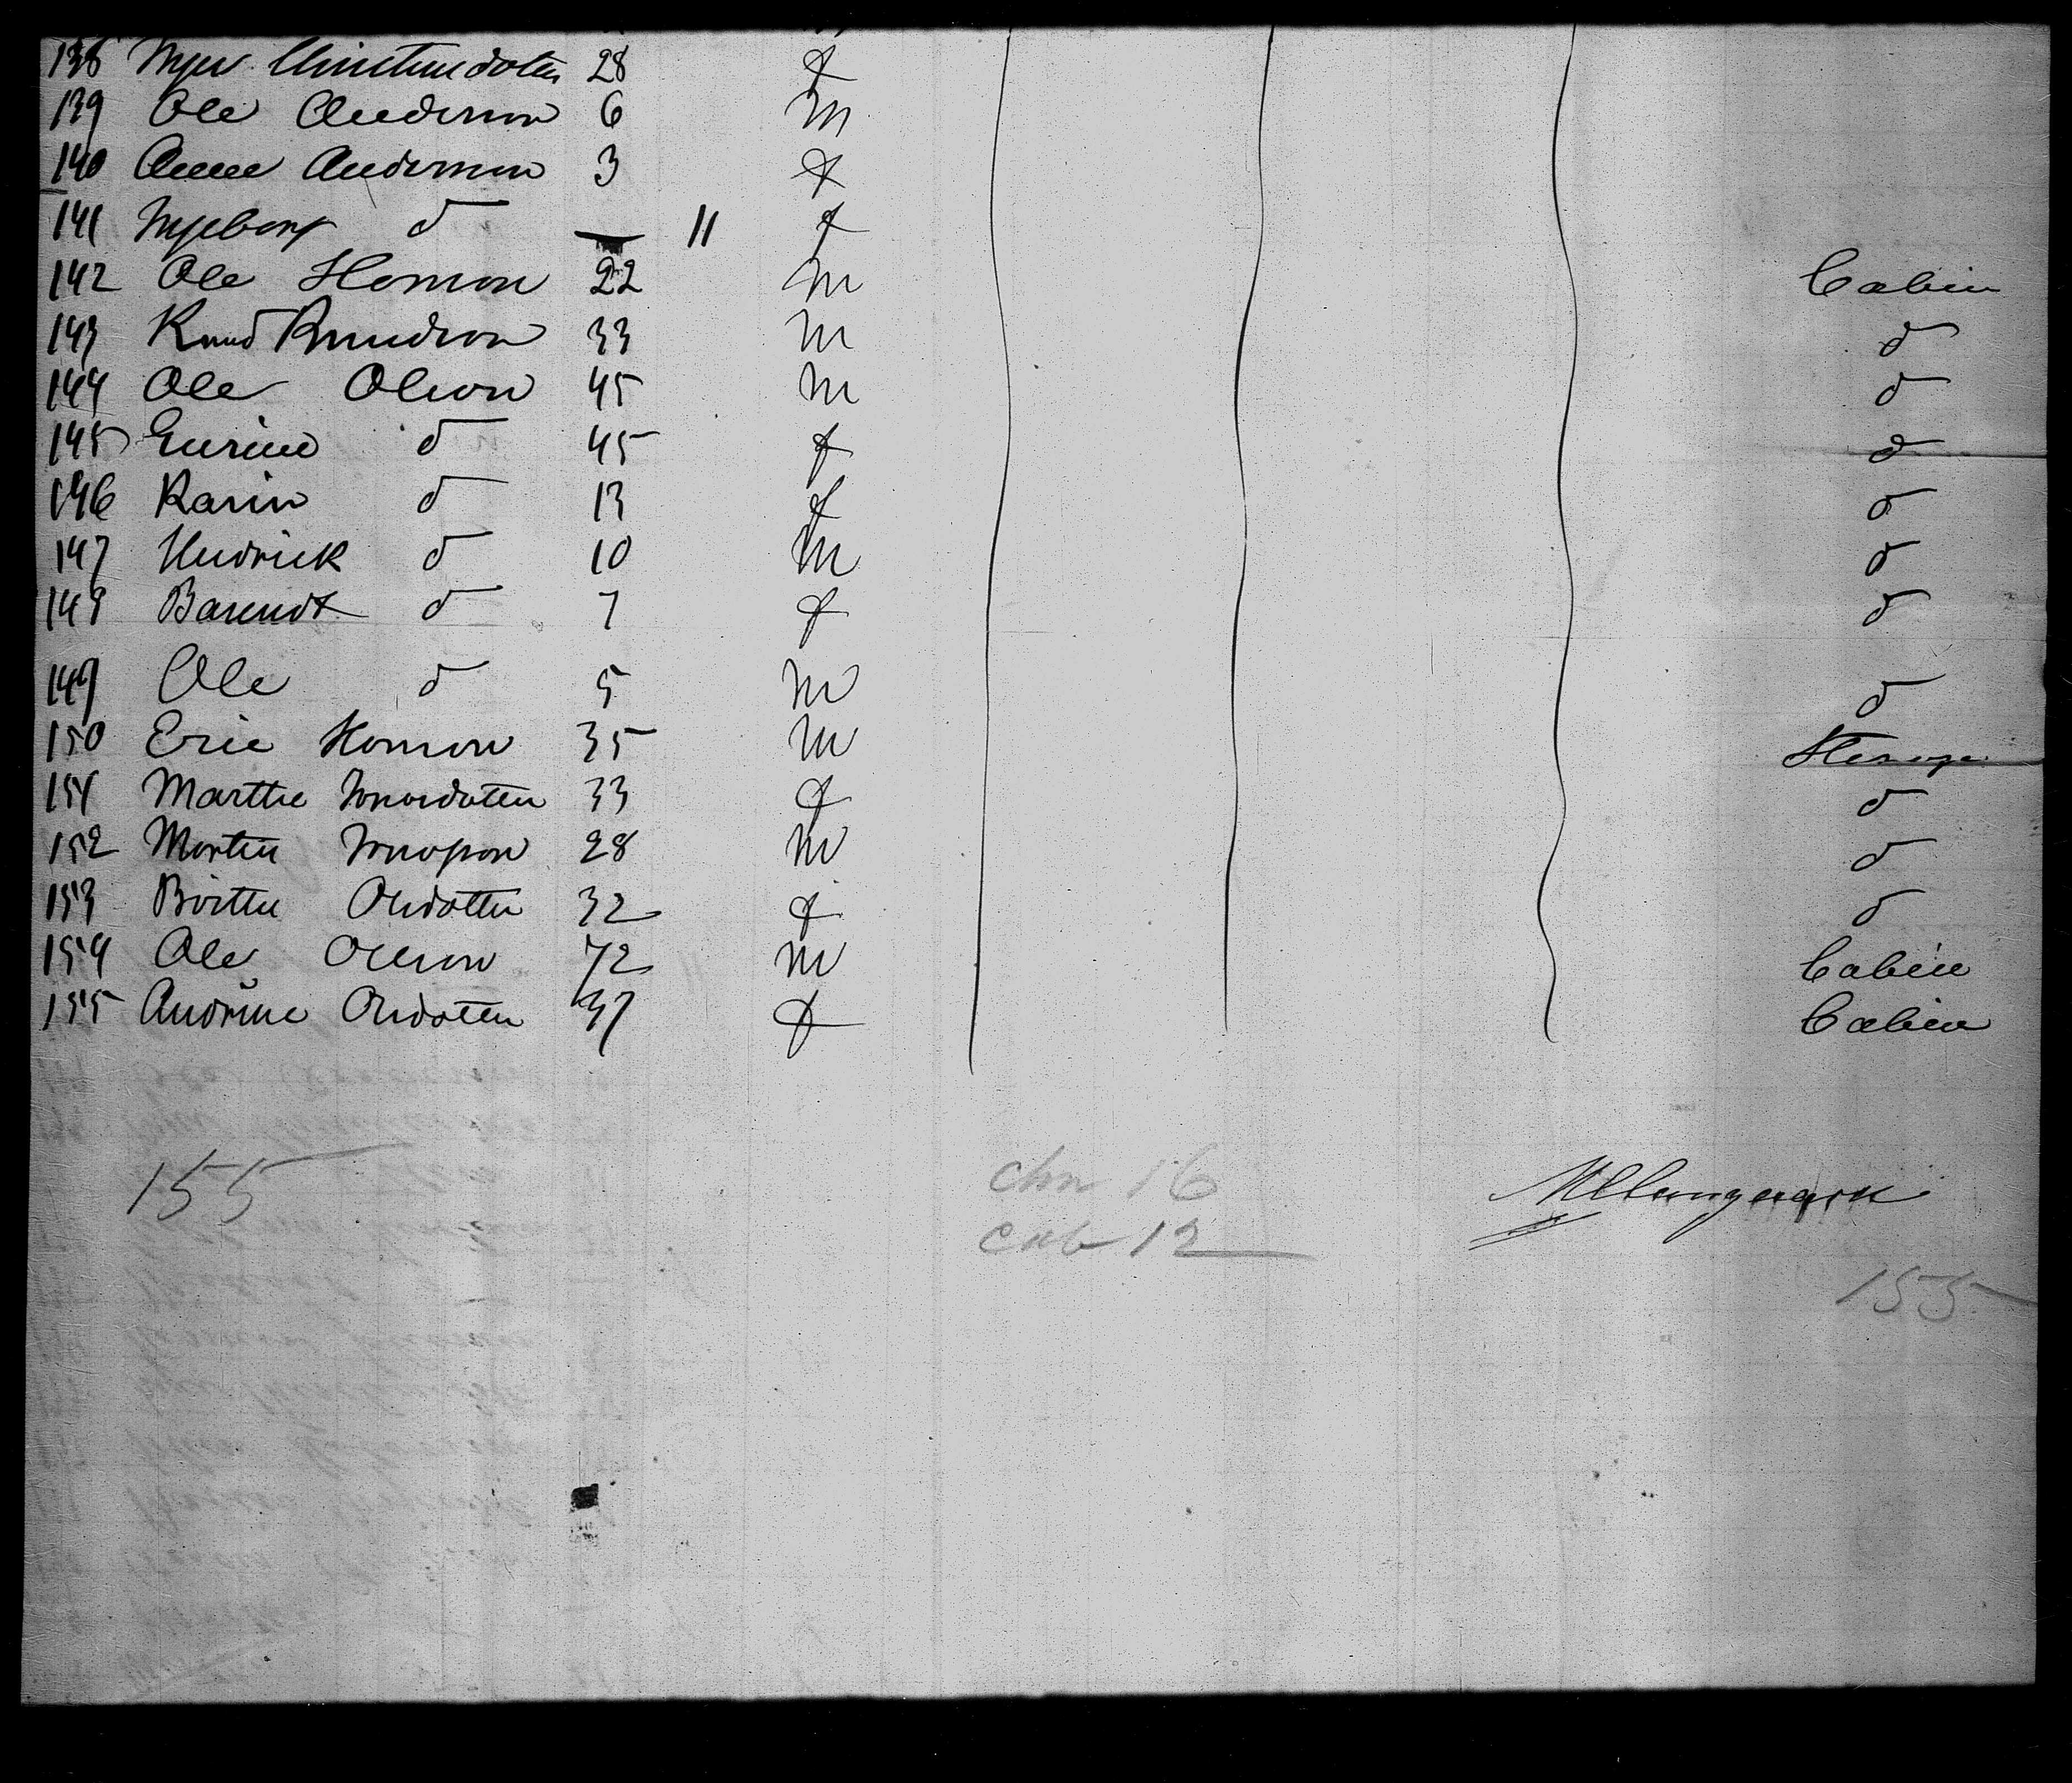 138 Christensdatter 28 f
139 Ole Anderson 6 m
140 Anne Anderson 3 f
141 Ingeborg d — 11 f
142 Ole 22 m Cabin
143 Knud Knudson 33 m d
144 Ole Olson 45 m d
145 d 45 f d
146 Karin d 13 f d
147 Hendrick d 10 m d
148 Barendt d 7 f d
149 Ole d 5 m d
150 Eric 35 m Steerage
151 Marthe 33 f d
152 Morten 28 m d
153 Birthe Olsdatter 32 f d
154 Ole Olson 72 m Cabin
155 Andrine Olsdatten 37 f Cabin
155 chn 16
cab 12
155